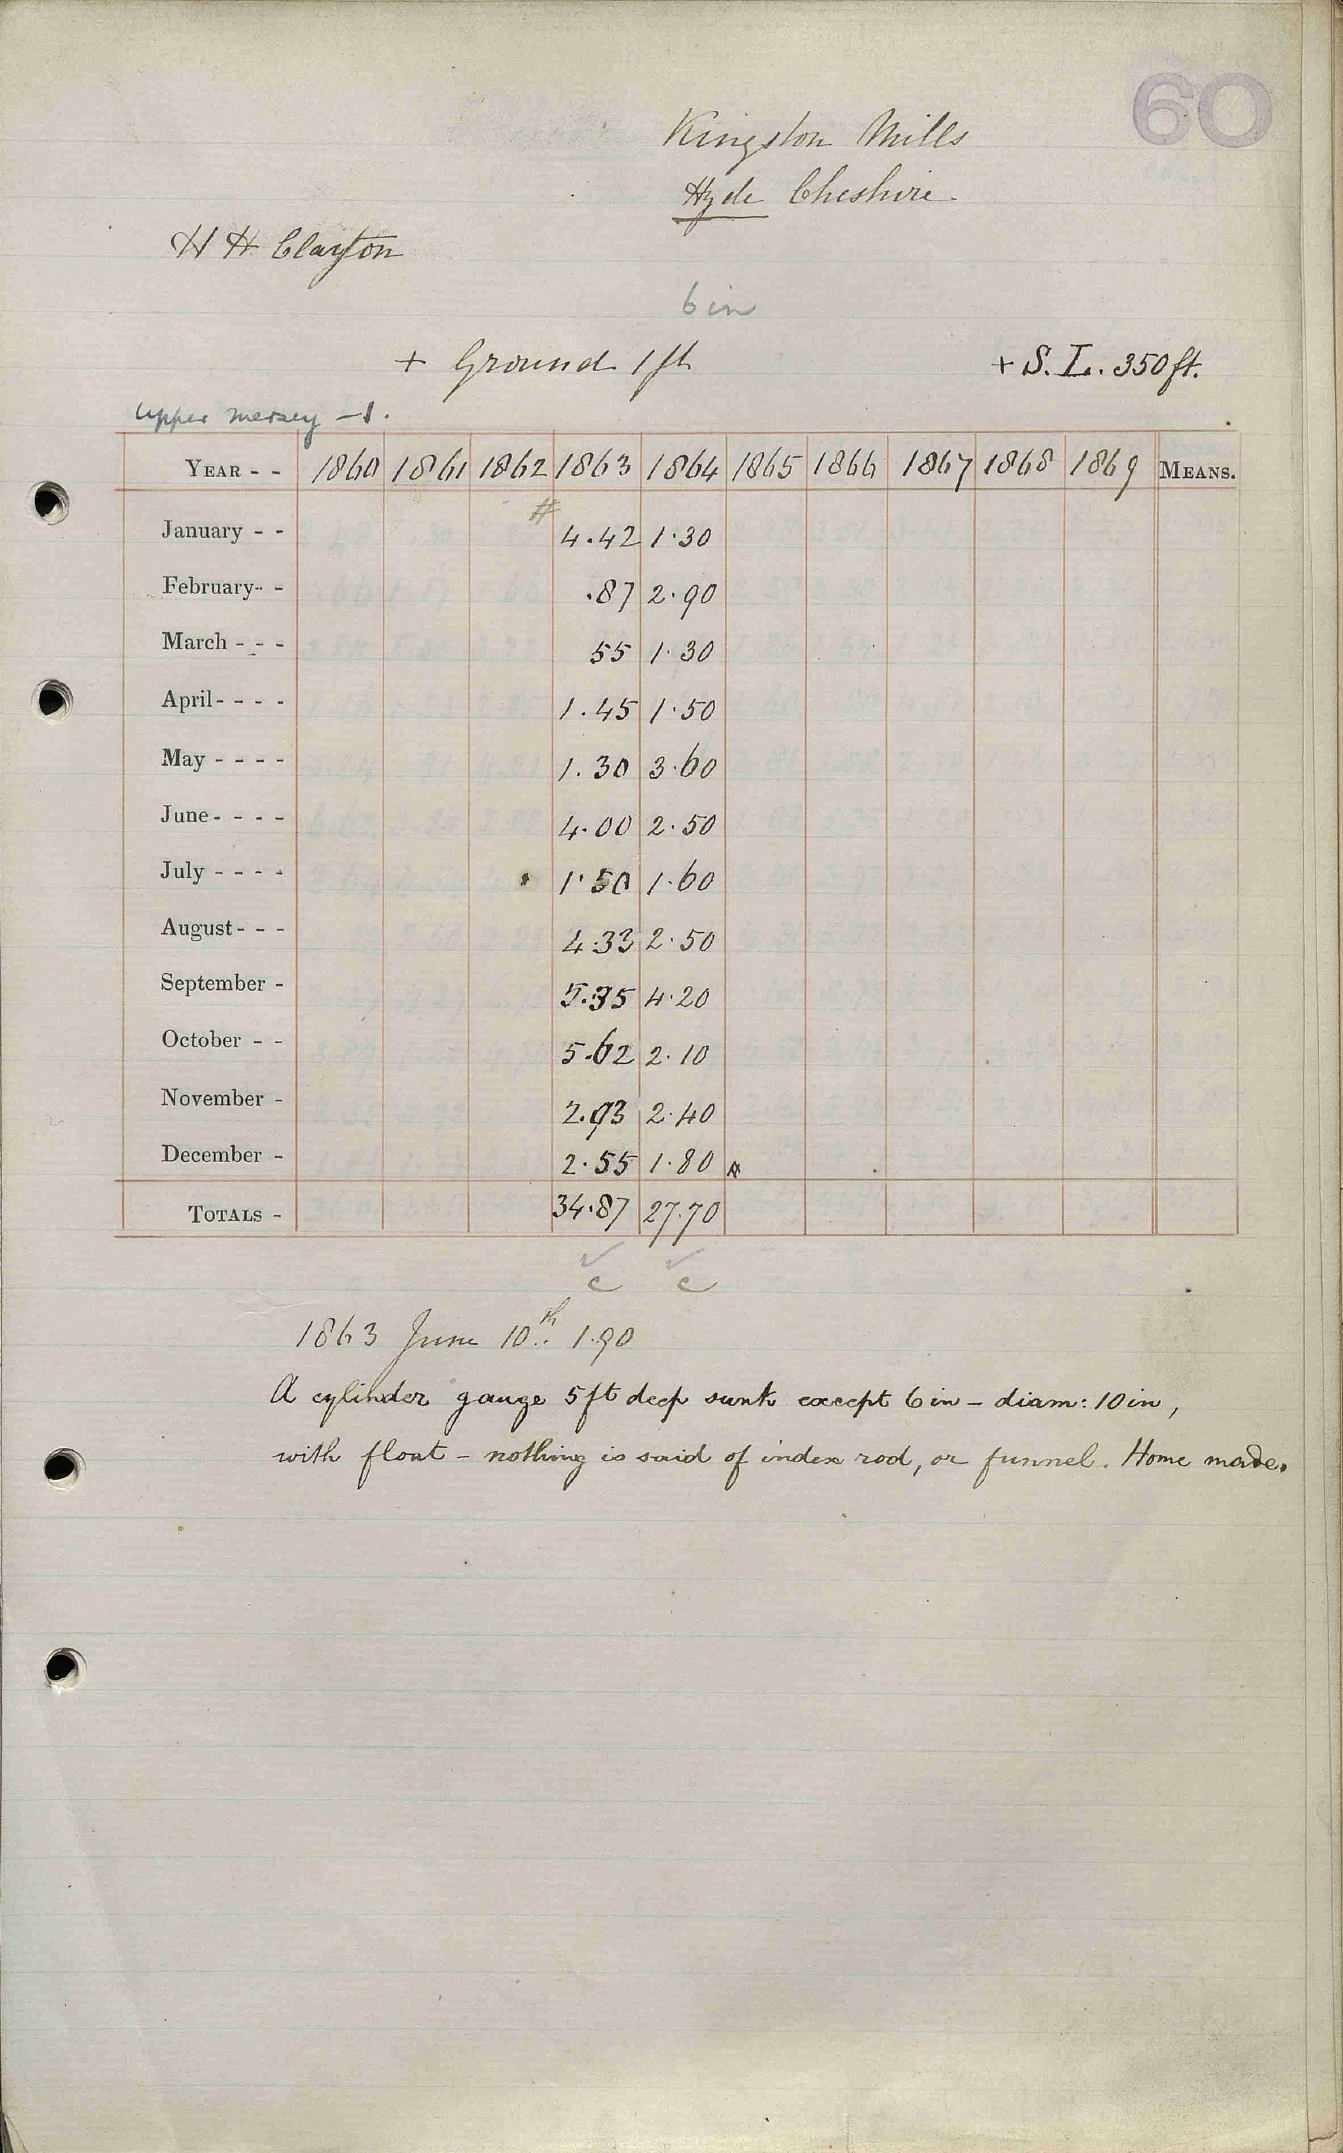 60
Kingston Mills
Hyde Cheshire.
H H Clayton
6 in
+ Ground 1 ft + S. L. 350 ft.
Upper Mersey - 1.
YEAR - - 1860 1861 1862 1863 1864 1865 1866 1867 1868 1869 MEANS.
#
January - - 4.42 1.30
February - - .87 2.90
March - - - 55 1.30
April - - - - 1.45 1.50
May - - - - 1.30 3.60
June - - - - 4.00 2.50
July - - - - 1.50 1.60
August - - - 4.33 2.50
September - 5.35 4.20
October - - 5.62 2.10
November - 2.93 2.40
December - 2.55 1.80
TOTALS - 34.87 27.70
c c
1863 June 10th. 1.90
A cylinder gauge 5 ft deep sunk except 6 in - diam: 10 in,
with float - nothing is said of index rod, or funnel. Home made.